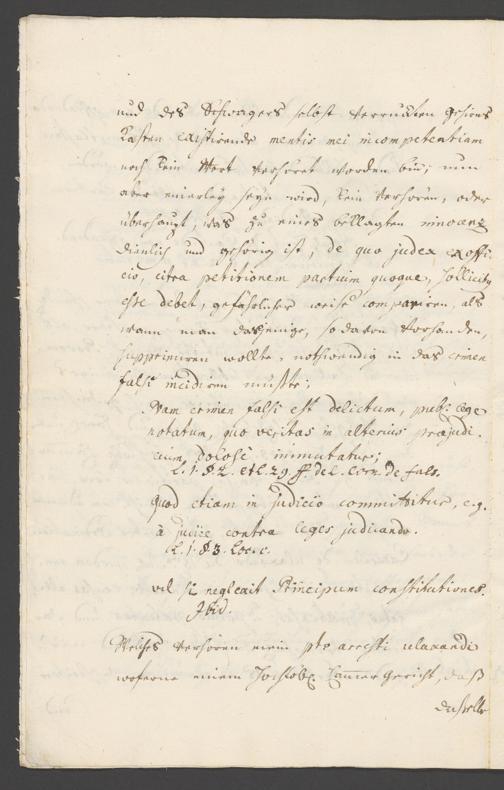 und des Schwagers selbst verruckten Gehirns
Kasten existirende mentis mei incompetentiam
noch kein Wort verhöret worden bin; nun
aber einerley seyn wird, kein Verhören, oder
überhaupt, was zu eines beklagten innocenz
dienlich und gehörig ist, de quo judex ex offi
cio, citra petitionem partium quoque, sollicitus
esse debet, gefährlicher weise compariren, als
wann man dasjenige, so davon vorhanden,
supprimiren wollte, nothwendig in das crimen
falsi incidiren müste;
Nam crimen falsi est delictum, publ. lege
notatum, quo veritas in alterius præjudi
cium dolose immutatur;
L. 1. §. 2. et L. 29. ff. de L. Corn. de fals.
Quod etiam in judicio committitur, e. g.
à judice contra leges judicando.
L. 1. §. 3. loc. c.
vel si neglexit Principum constitutiones.
Ibid.
Welches verhören mein pto arresti relaxandi
woferne einem Hochlöbl. Cammer Gericht, daß
dasselbe